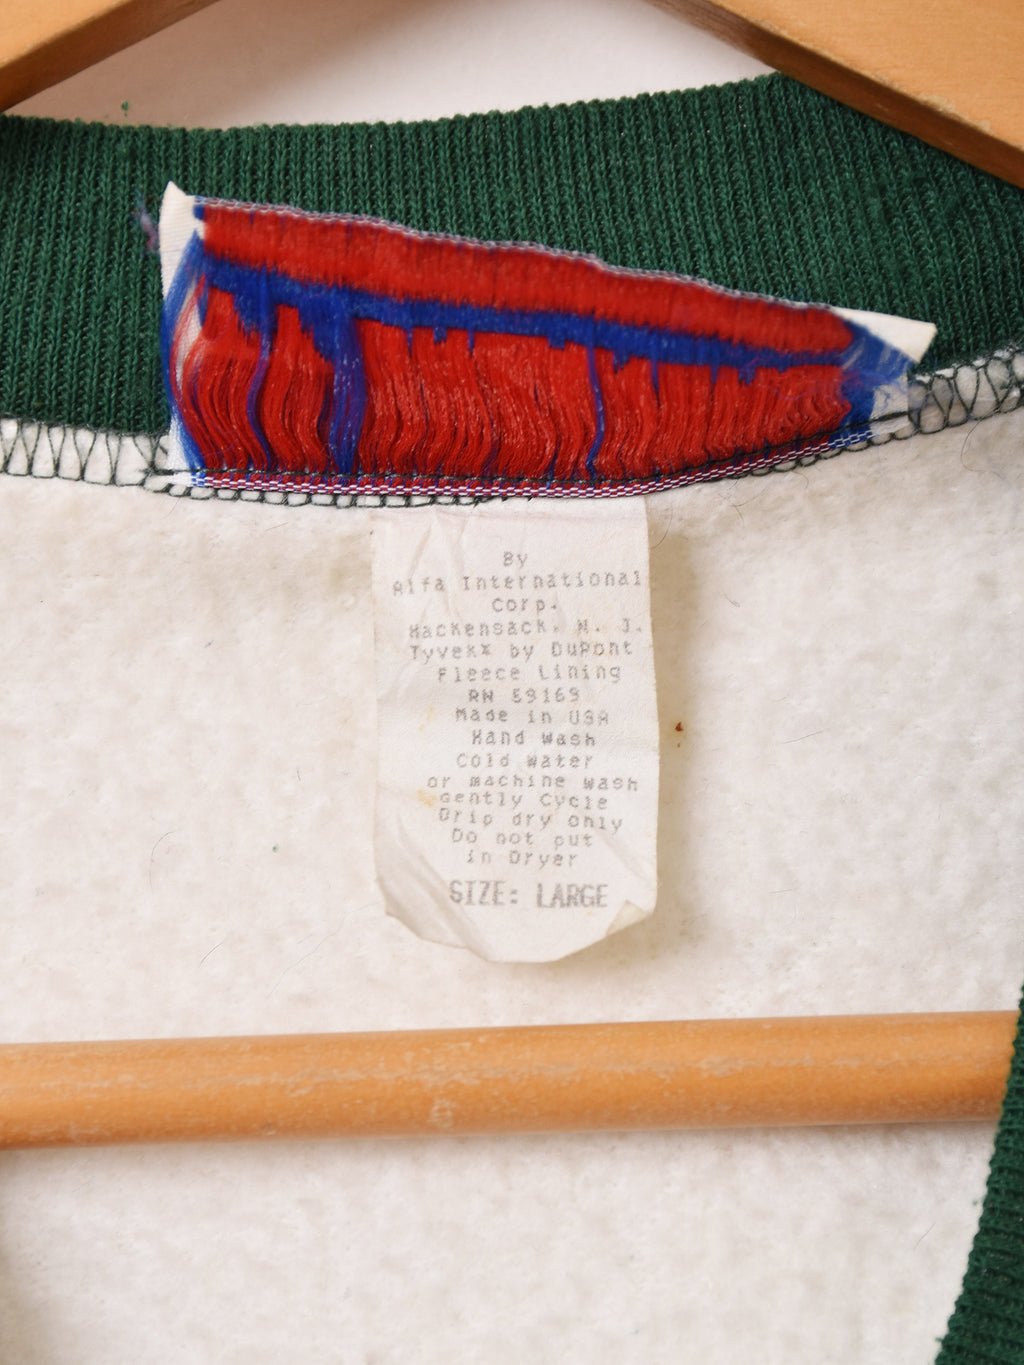 By
Alfa International
Corp.
Hackensack, N. J.
Tyvek* by DuPont
Fleece Lining
RN 59169
Made in USA
Hand Wash
Cold Water
or machine wash
Gently Cycle
Drip dry only
Do not put
in Dryer
SIZE: LARGE